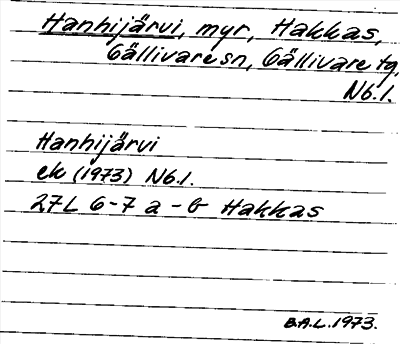 Hanhijärvi, myr, Hakkas,
Gällivare sn, Gällivare tg,
Nb.l.
Hanhijärvi
ek (1973) Nb.l.
27L 6-7 a-b Hakkas
B.A.L. 1973.